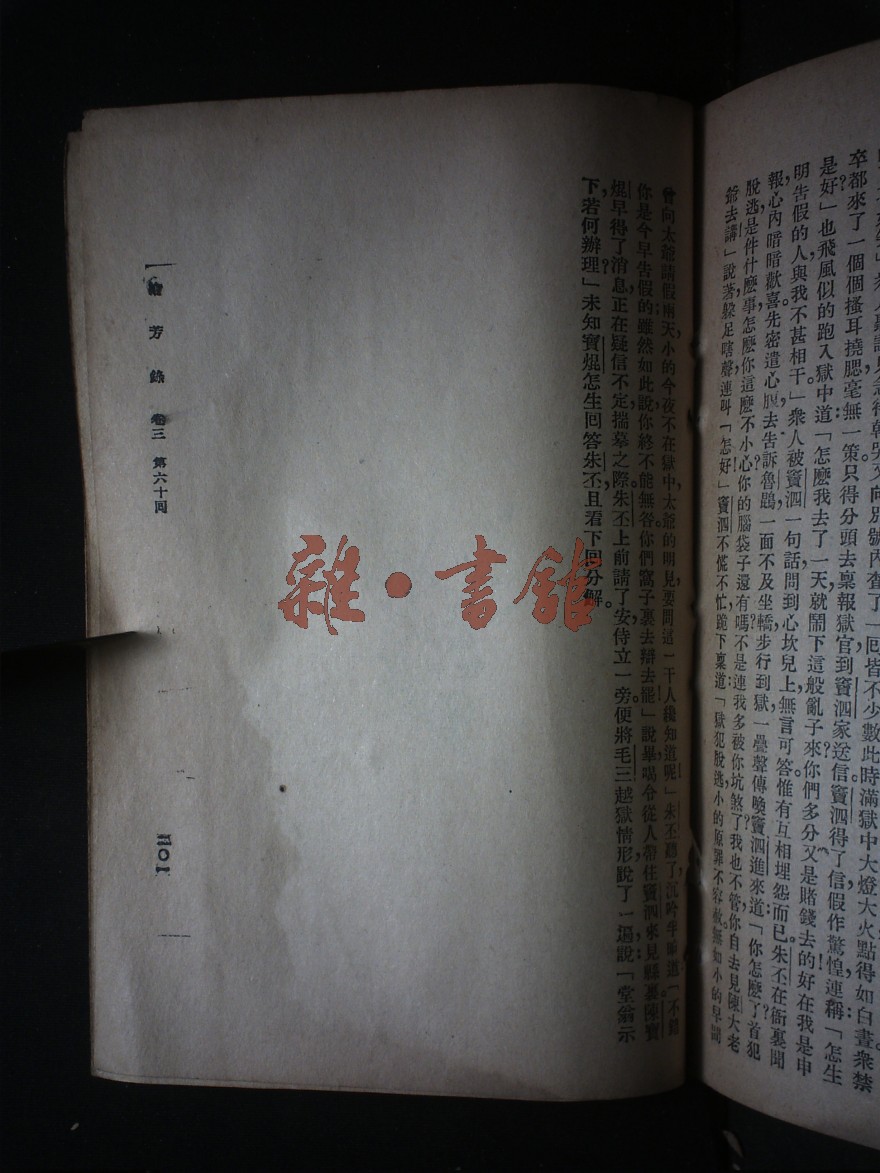 卒都來了一個個搔耳撓腮毫無一策只得分頭去稟報獄官到竇泗家送信竇泗得了信假作驚惶連稱「怎生
是好」也飛風似的跑入獄中道「怎麽我去了一天就鬧下這般亂子來你們多分又是賭錢去的好在我是申
明告假的人與我不甚相干」衆人被竇泗一句話問到心坎兒上無言可答惟有互相埋怨而已朱丕在衙裏聞
報心內暗暗歡喜先密遣心腹去告訴魯鵾一面不及坐轎步行到獄一疊聲傳喚竇泗進來道「你怎麽了首犯
脫逃是件什麽事怎麽你這麽不小心你的腦袋子還有嗎不是連我多被你坑煞了我也不管你自去見陳大老
爺去講」說著跺足嗐聲連叫「怎好」竇泗不慌不忙跪下稟道「獄犯脫逃小的原罪不容赦無如小的早間
曾向太爺請假兩天小的今夜不在獄中太爺的明見要問這一干人纔知道呢」朱丕聽了沉吟半晌道「不錯
你是今早告假的雖然如此說你終不能無咎你們窩子裏去辯去罷」說畢喝令從人帶住竇泗來見縣裏陳寶
焜早得了消息正在疑信不定揣摹之際朱丕上前請了安侍立一旁便將毛三越獄情形說了一遍說「堂翁示
下若何辦理」未知寶焜怎生回答朱丕且看下回分解。
繪芳錄 卷三 第六十回
三〇一
雜·書館